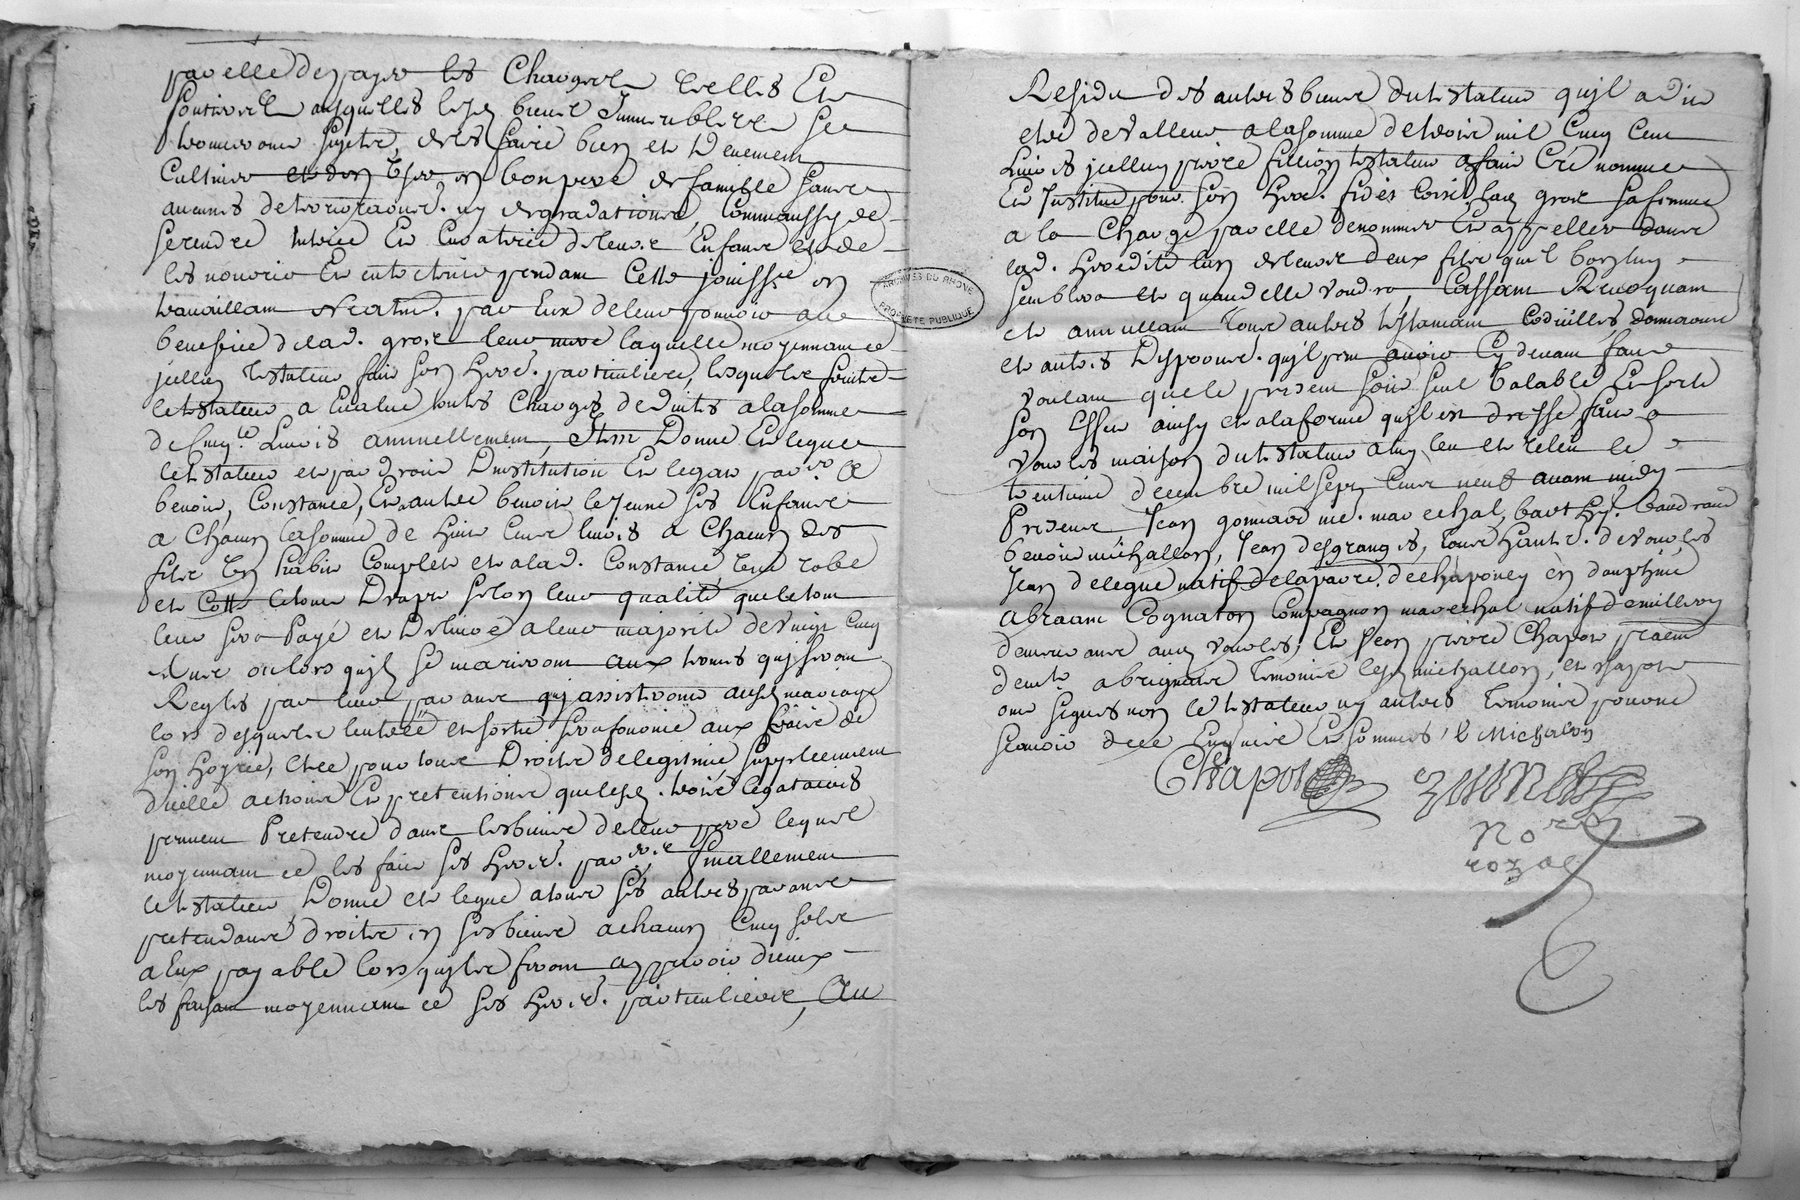 par elle de payer les Charges reelles Et
fontieres ausquelles lesd. biens Immeubles se
trouveront sujets, de les faire bien et Deuement
Cultiver et d'en User en bon pere de famille sans
aucunes deteriorations ny degradations, Comme aussy de
se rendre tutrice Et Curatrice de leurs Enfans et de
les nourrir Et entretenir pendant Cette jouissce en
travaillant par Eux de leur pouvoir au
benefice de lad. leur mere laquelle moyennant ce
jullien testateur fait son herre. particuliere, lesquels fruits
le testateur a Evalué toutes Charges deduites a la somme
de livres annuellement, Item Donne Et legue
le testateur et par droit D'institution Et legat parer. a
benoit, Constance, Et autre benoit le Jeune ses Enfans
a Chacun la somme de huit cent livres a Chacun des
fils Un habit Complet et a lad. Constance Une robe
et Cotte le tout Drapt selon leur qualité que le tout
leur sera Payé et Delivré a leur majorité de vingt Cinq
ans ou lors qu'ils se mariront aux termes qui seront
Reglés par leur parans qui assisteront aus. mariage
lors desquels
son hoyrie, et ce pour tous Droits de legitime supplement
d'icelle actions Et pretentions que lesd. trois legataires
peuvent Pretendre dans les biens de leur pere lequel
moyennant ce les fait ses herrs. parers. finallement
le testateur Donne et legue a tous ses autres parans
pretendans droits en ses biens a chacun Cinq sols
a Eux payable lors qu'ils feront apparoir d'iceux
les faisant moyennant ce ses herrs. particuliers, Au
Residu des autres biens du testateur qu'il a dit
etre de valleur a la somme de trois mil Cinq Cent
Livres jullien pierre testateur a fait Créé nommé
Et Institué pour son herre. sa femme
a la Charge par elle de nommer Et appeller dans
lad. heredité l'un de leurs deux fils que bon luy
semblera et quand elle voudra, Cassant Revoquant
et annullant tous autres testamans Codicilles, Donnations
et autres Dispoons. qu'il peut avoir Cy devant fait
voulant que le present soit seul Valable Et sorte
son Effet ainsy et a la forme qu'il est dressé fait a
vourles maison du testateur a luy leu et releu le
trentieme decembre mil sept cent neuf avant midy
Presens Jean gonnard me. marechal, barthy. baudrand
benoit michallon, Jean desgranges, tous habts. de vourles
Jean delegue natif de la parre. de chaponey en dauphiné
Abraam Cognaton Compagnon marechal natif d
demeurans aud. vourles, Et Jean pierre Chapot praen
demt. a brignais temoins lesd. michallon, et chapot
ont signés non le testateur ny autres temoins pour ne
scavoir de ce Enquis Et sommés, b Michalon
Chapot
Nore
royal
ARCHIVES DU RHÔNE
PROPRIÉTÉ PUBLIQUE